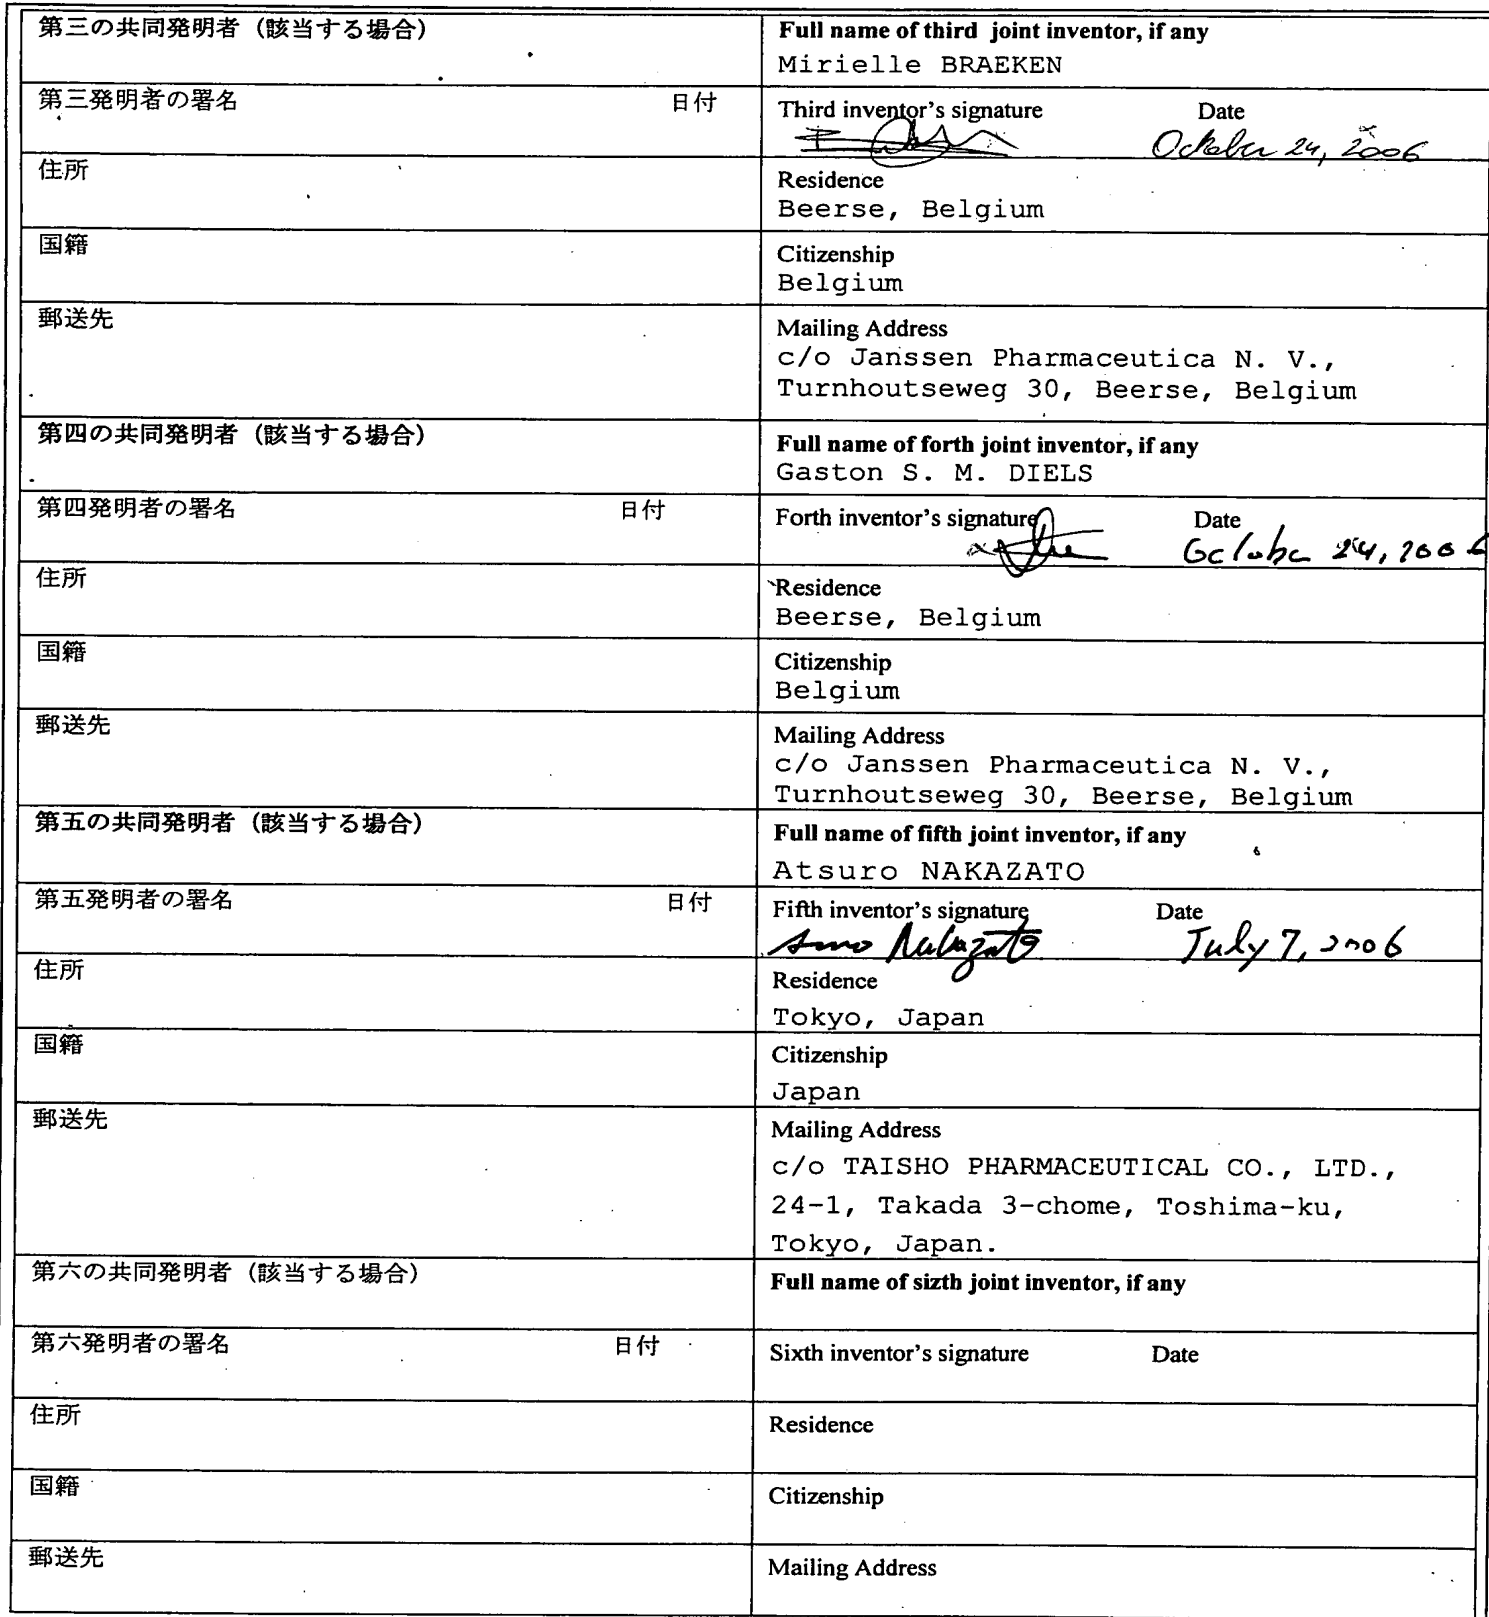 第三の共同発明者（該当する場合）
Full name of third joint inventor, if any
Mirielle BRAEKEN
第三発明者の署名 日付
Third inventor's signature Date
October 24, 2006
住所
Residence
Beerse, Belgium
国籍
Citizenship
Belgium
郵送先
Mailing Address
c/o Janssen Pharmaceutica N. V.,
Turnhoutseweg 30, Beerse, Belgium
第四の共同発明者（該当する場合）
Full name of forth joint inventor, if any
Gaston S. M. DIELS
第四発明者の署名 日付
Forth inventor's signature Date
October 24, 2006
住所
Residence
Beerse, Belgium
国籍
Citizenship
Belgium
郵送先
Mailing Address
c/o Janssen Pharmaceutica N. V.,
Turnhoutseweg 30, Beerse, Belgium
第五の共同発明者（該当する場合）
Full name of fifth joint inventor, if any
Atsuro NAKAZATO
第五発明者の署名 日付
Fifth inventor's signature Date
Nakazato July 7, 2006
住所
Residence
Tokyo, Japan
国籍
Citizenship
Japan
郵送先
Mailing Address
c/o TAISHO PHARMACEUTICAL CO., LTD.,
24-1, Takada 3-chome, Toshima-ku,
Tokyo, Japan.
第六の共同発明者（該当する場合）
Full name of sizth joint inventor, if any
第六発明者の署名 日付
Sixth inventor's signature Date
住所
Residence
国籍
Citizenship
郵送先
Mailing Address